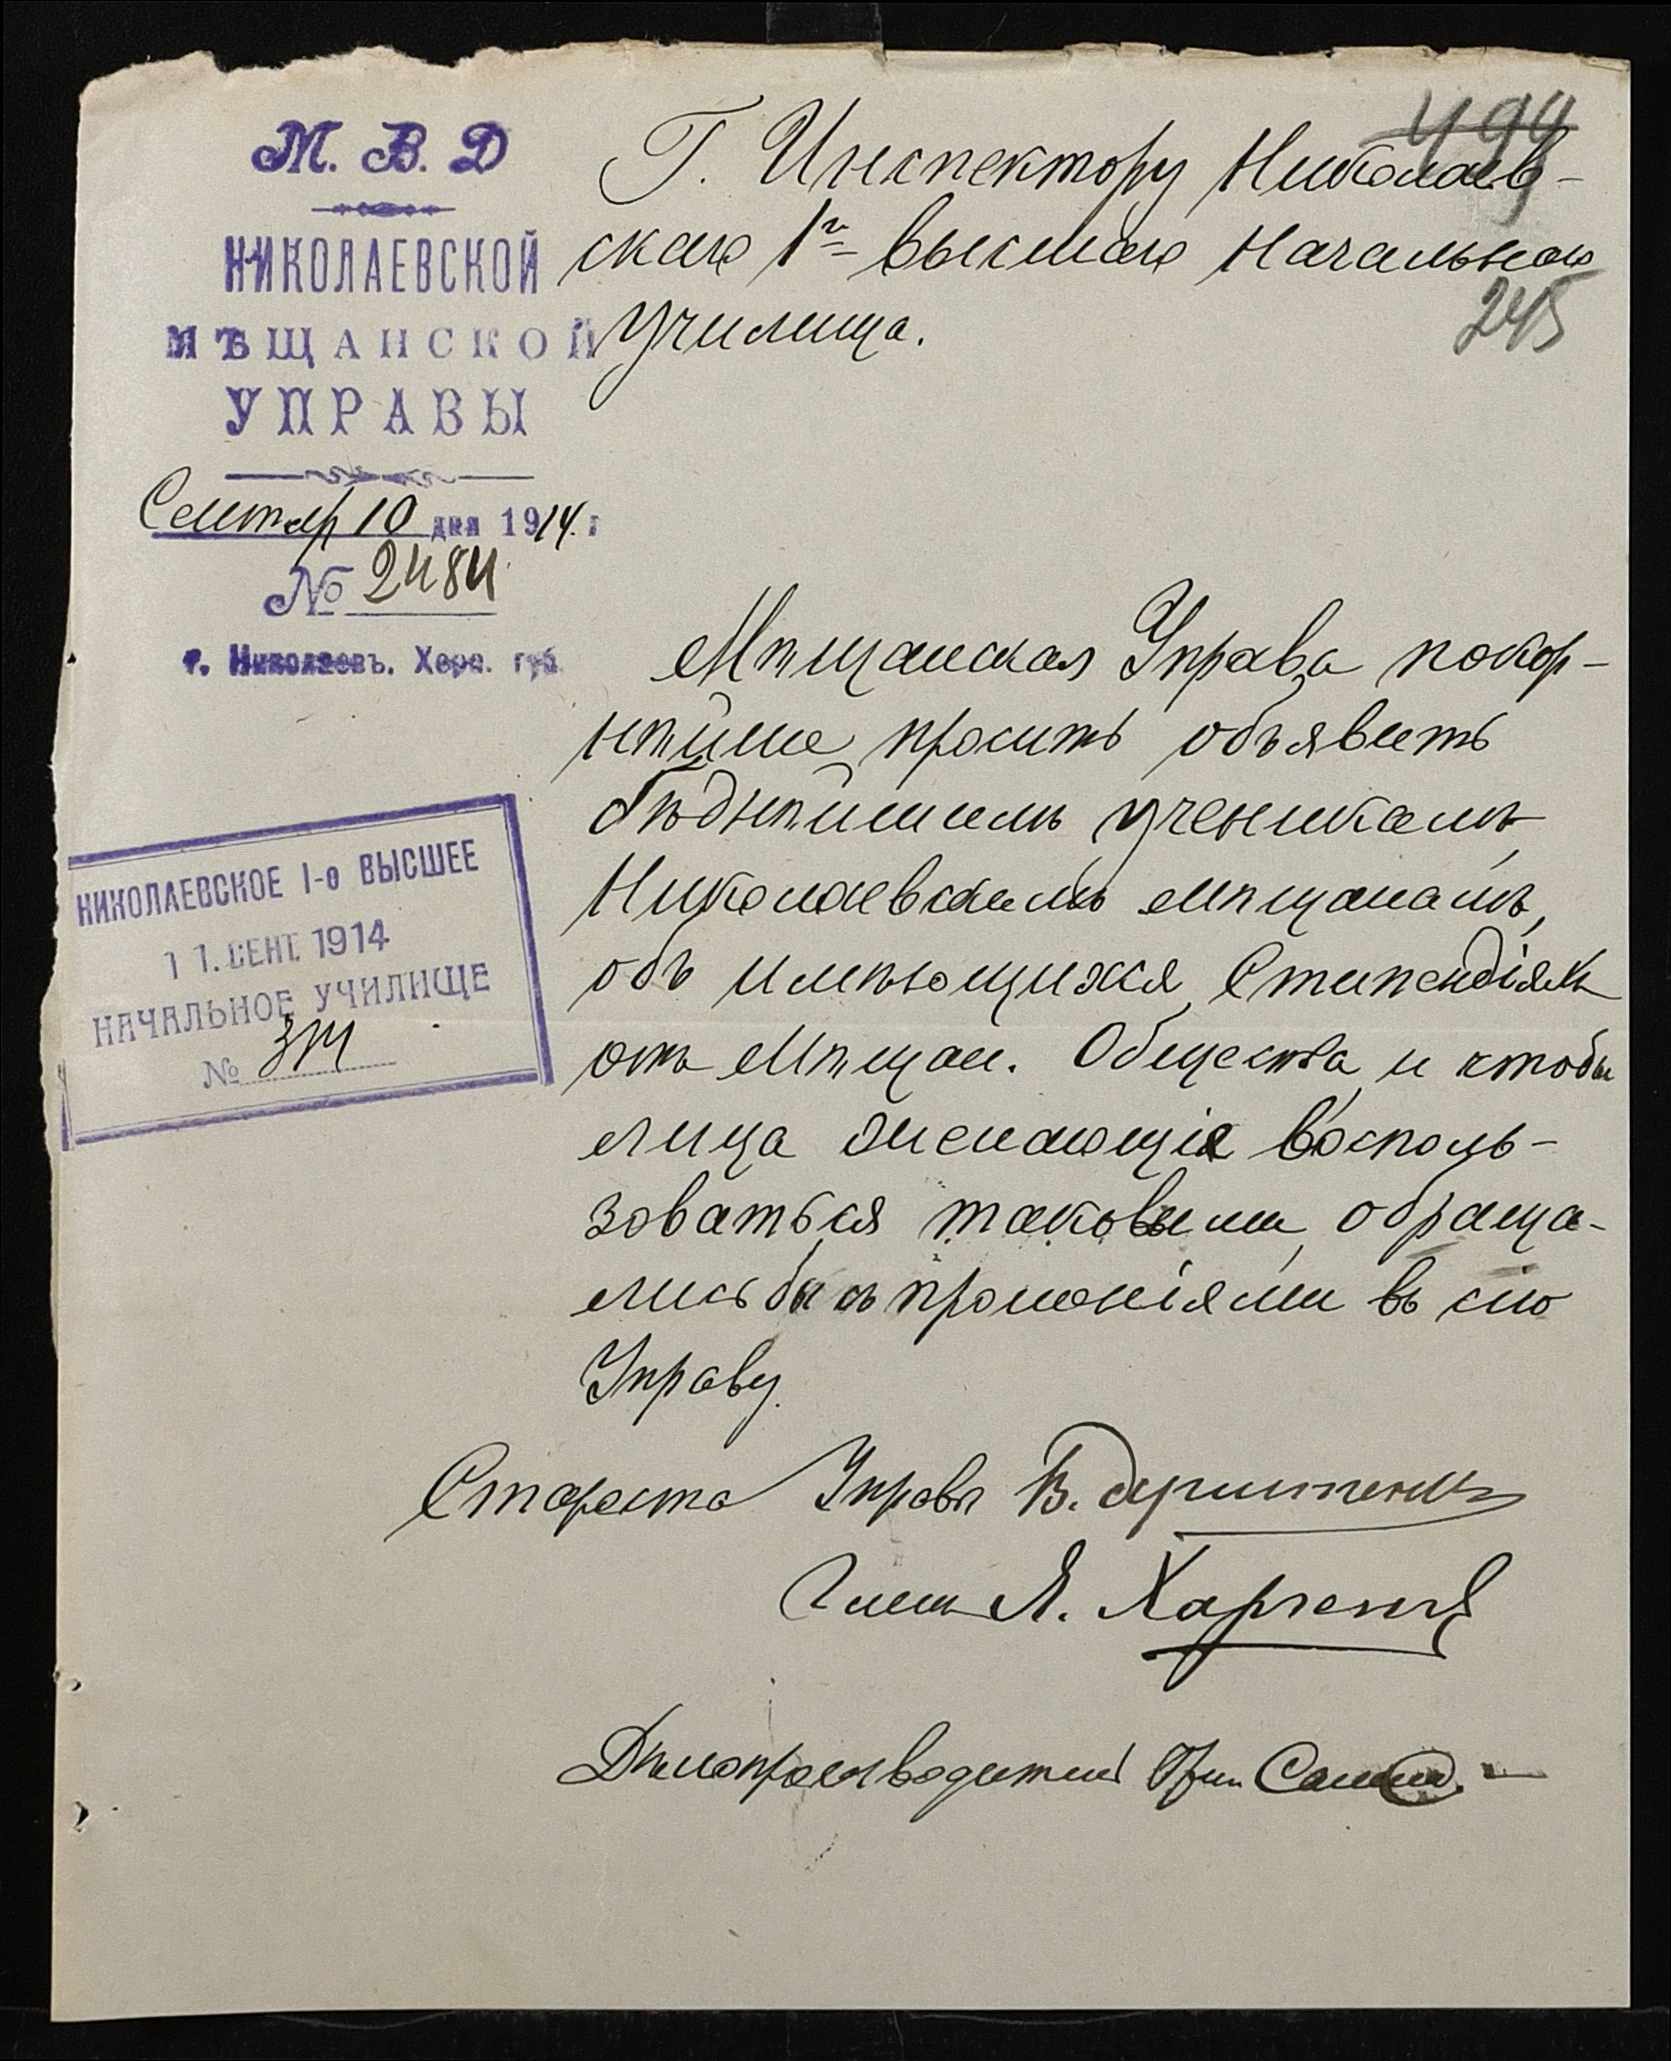 М. В. Д
НИКОЛАЕВСКОЙ
МѢЩАНСКОЙ
УПРАВЫ
Сентяр 10 дня 1914. г
№ 2484
г. Николаевъ. Херс. губ.
494
245
Г. Инспектору Николаев-
скаго 1го высшаго Начальнаго
училища.
Мѣщанская Управа покор-
нѣйше проситъ объявить
бѣднѣйшимъ ученикамъ
Николаевскимъ мѣщанамъ,
объ имѣющихся Стипендіяхъ
отъ Мѣщан. Общества и чтобы
лица желающіе восполь-
зоваться таковыми, обраща-
лись бы съ прошеніями въ сію
Управу.
НИКОЛАЕВСКОЕ 1-о ВЫСШЕЕ
11. СЕНТ. 1914
НАЧАЛЬНОЕ УЧИЛИЩЕ
№ 314
Староста Управы В.
Члены Я. Харченко
Дѣлопроизводитель